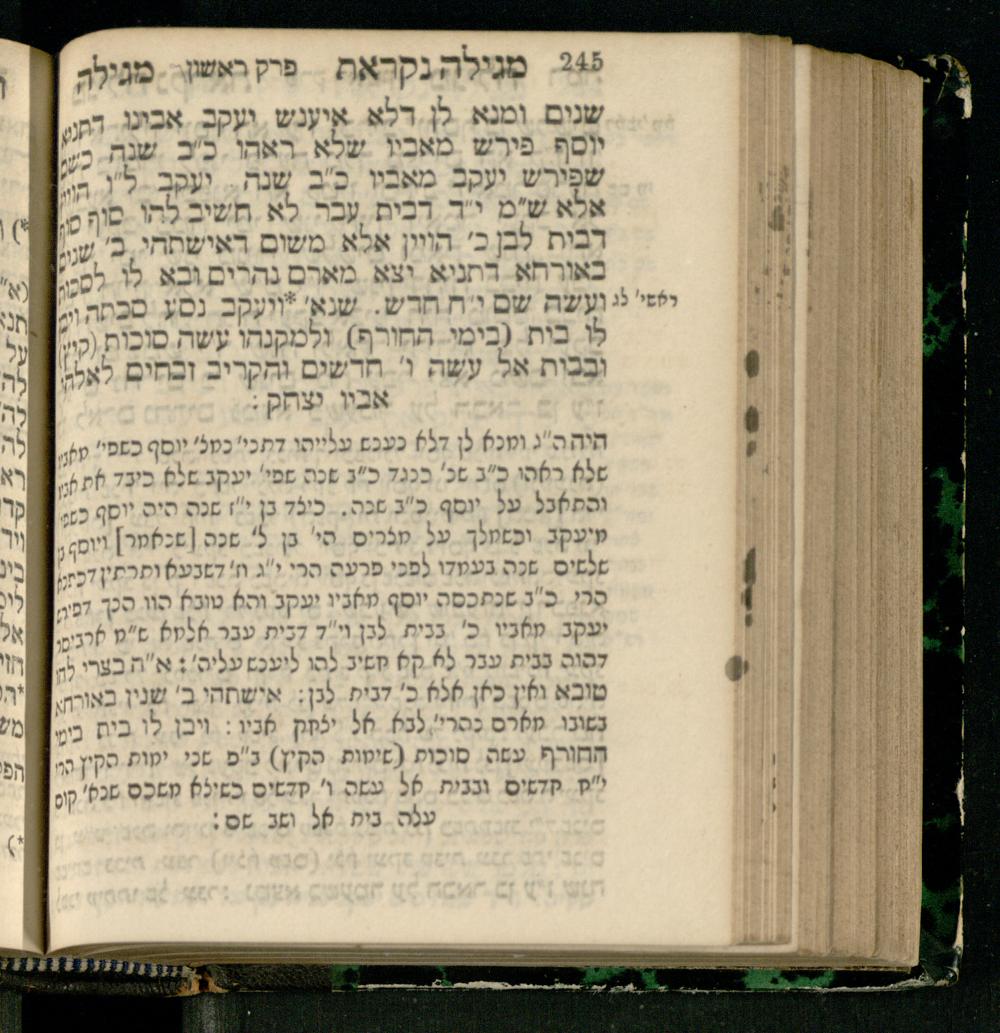 245 מגילה נקראת פרק ראשון מגילה
שנים ומנא לן דלא איענש יעקב אבינו דתניא
יוסף פירש מאביו שלא ראהו כ"ב שנה כשם
שפירש יעקב מאביו כ"ב שנה. יעקב ל"ו הויין
אלא ש"מ י"ד דבית עבר לא חשיב להו סוף סוף
דבית לבן כ' הויין אלא משום דאישתהי ב' שנים
באורחא דתניא יצא מארם נהרים ובא לו לסכות
ועשה שם י"ח חדש. שנא' *ויעקב נסע סכתה ויבן
ראשי' לג
לו בית (בימי החורף) ולמקנהו עשה סוכות (קיץ)
ובבית אל עשה ו' חדשים והקריב זבחים לאלהי
אביו יצחק :
היה ה"ג ומנא לן דלא נענש עלייהו דתני' נמל' יוסף כשפי' מאביו
שלא ראהו כ"ב שנ' כנגד כ"ב שנה שפי' יעקב שלא כיבד את אביו
והתאבל על יוסף כ"ב שנה. כיצד בן י"ז שנה היה יוסף כשפי'
מיעקב וכשמלך על מצרים הי' בן ל' שנה [שנאמר] ויוסף בן
שלשים שנה בעמדו לפני פרעה הרי י"ג וז' דשבעא ותרתין דכפנא
הרי כ"ב שנתכסה יוסף מאביו יעקב והא טובא הוו הנך דפירש
יעקב מאביו כ' בבית לבן וי"ד דבית עבר אלמא ש"מ ארביסר
דהוה בבית עבר לא קא חשיב להו ליענש עליה' : א"ה בצרי להו
טובא ואין כאן אלא כ' דבית לבן : אישתהי ב' שנין באורחא
בשובו מארם נהרי' לבא אל יצחק אביו : ויבן לו בית בימי
החורף עשה סוכות (שימות הקיץ) ב"פ שני ימות הקיץ הרי
י"ח חדשים ובבית אל עשה ו' חדשים כשילא משכם שנא' קום
עלה בית אל ושב שם :